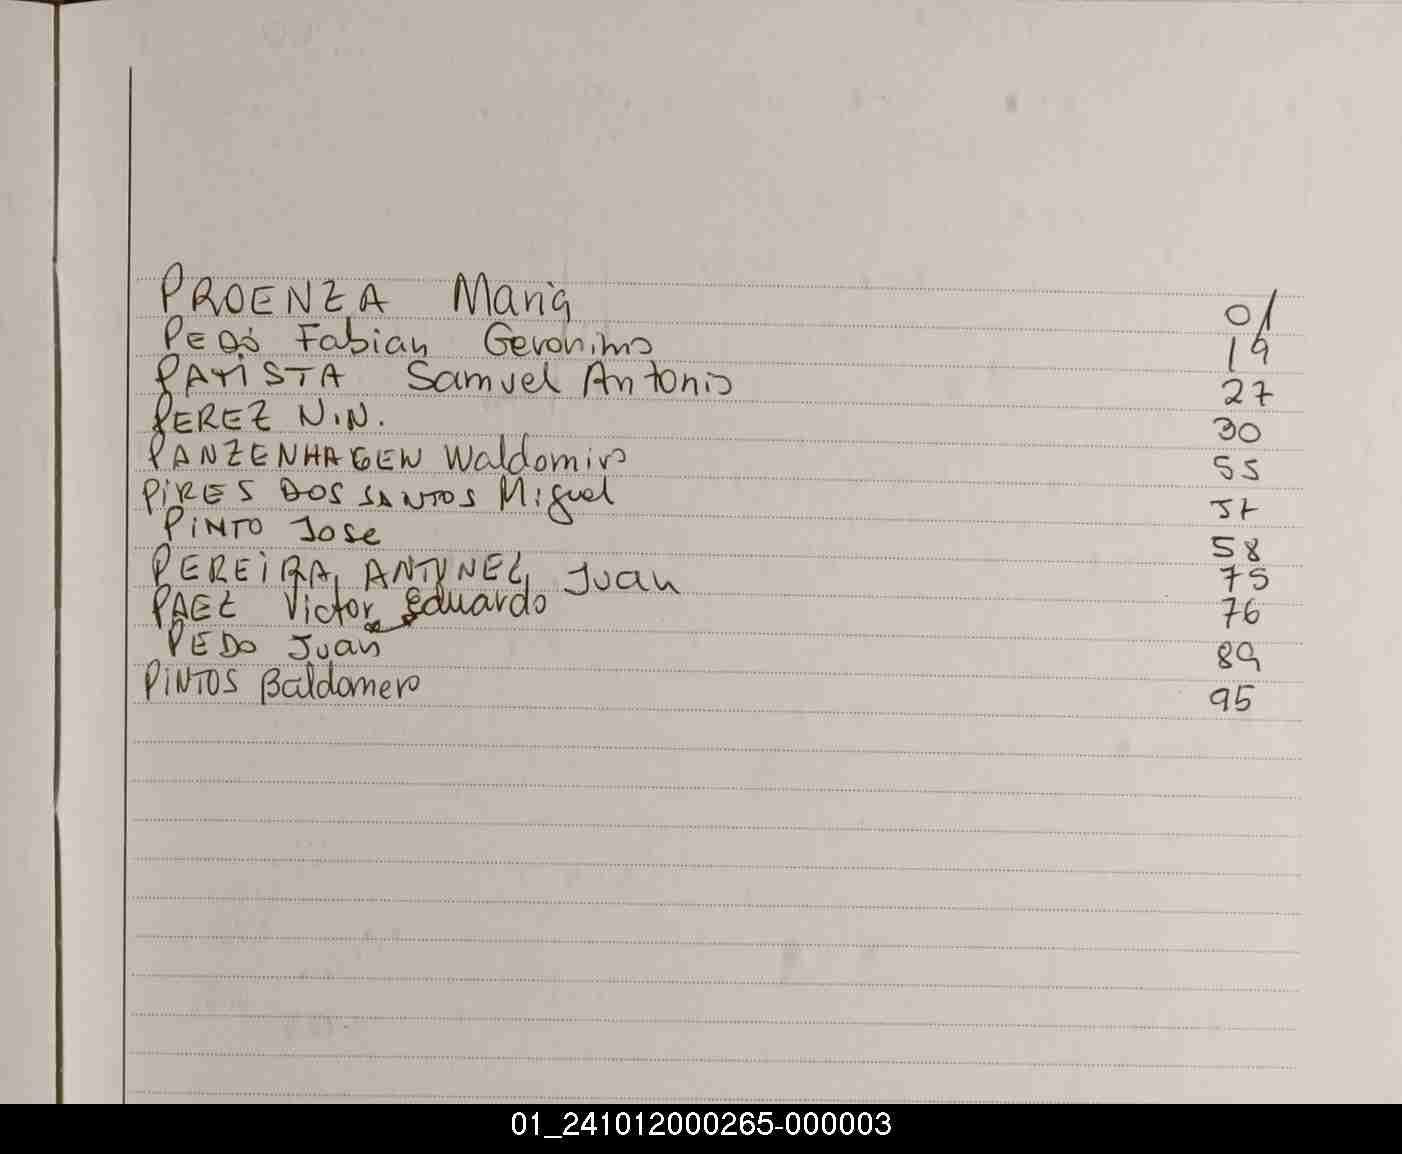 PROENZA Maria 01
PEDÓ Fabian Geronimo 19
PATISTA Samuel Antonio 27
PEREZ N.N. 30
PANZENHAGEN Waldomiro 55
PIRES DOS SANTOS Miguel 57
PINTO Jose 58
PEREIRA ANTUNEZ Juan 75
PAEZ Victor Eduardo 76
PEDO Juan 89
PINTOS Baldomero 95
01_241012000265-000003